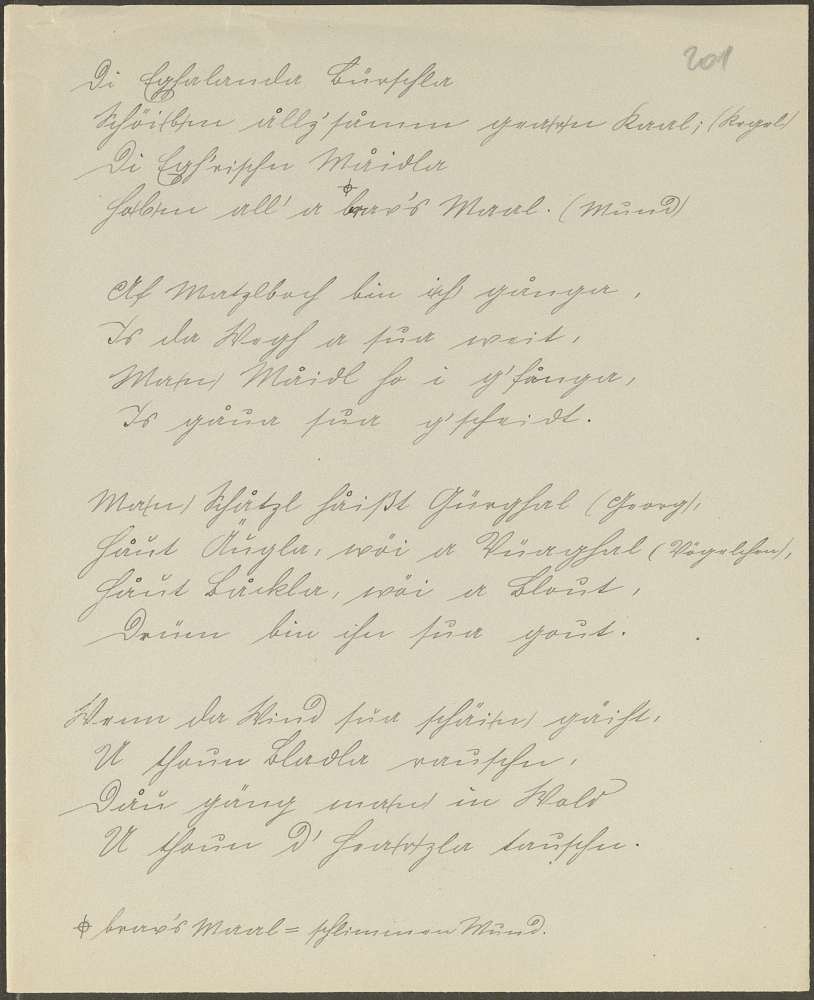 201
Di Eghalanda Bůrschla
Schöi(b)m ållz'såmm gea(r)n Kaal; (Kegel)
Di Egh'rischn Måidla
Ho(b)m all' a brav's Maal. (Mund)
Af Matzlboch bin i(ch) gånga,
Is da Wegh a sua weit,
Ma(n) Måidl ho i g'fånga,
Is gåua sua g'scheidt.
Ma(n) Schåtzl håißt Gürghal (Georg),
Håut Äugla, wöi a Vüaghal (Vögelchen),
Håut Båckla, wöi a Blout,
Drüm bin ihn sua gout.
Wenn da Wind sua schäi(n) gäiht,
U thoun Bladla rauschn,
Dåu gäng ma(n) in Wold
U thoun d' Hea(r)zla tauschn.
brav's Maal = schlimmen Mund.